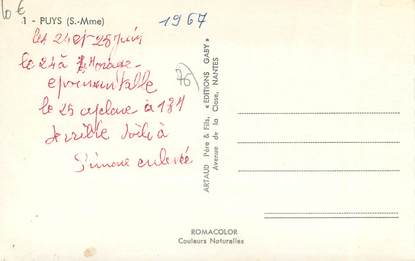 10 €
1 - PUYS (S.-Mme)
1967
les 24 et 25 juin
le 24 à
épouvantable
76
le 25 cyclone à 18h
terrible voilà
Simone enlevée
ARTAUD Père & Fils, « EDITIONS GABY »
Avenue de la Close, NANTES
ROMACOLOR
Couleurs Naturelles